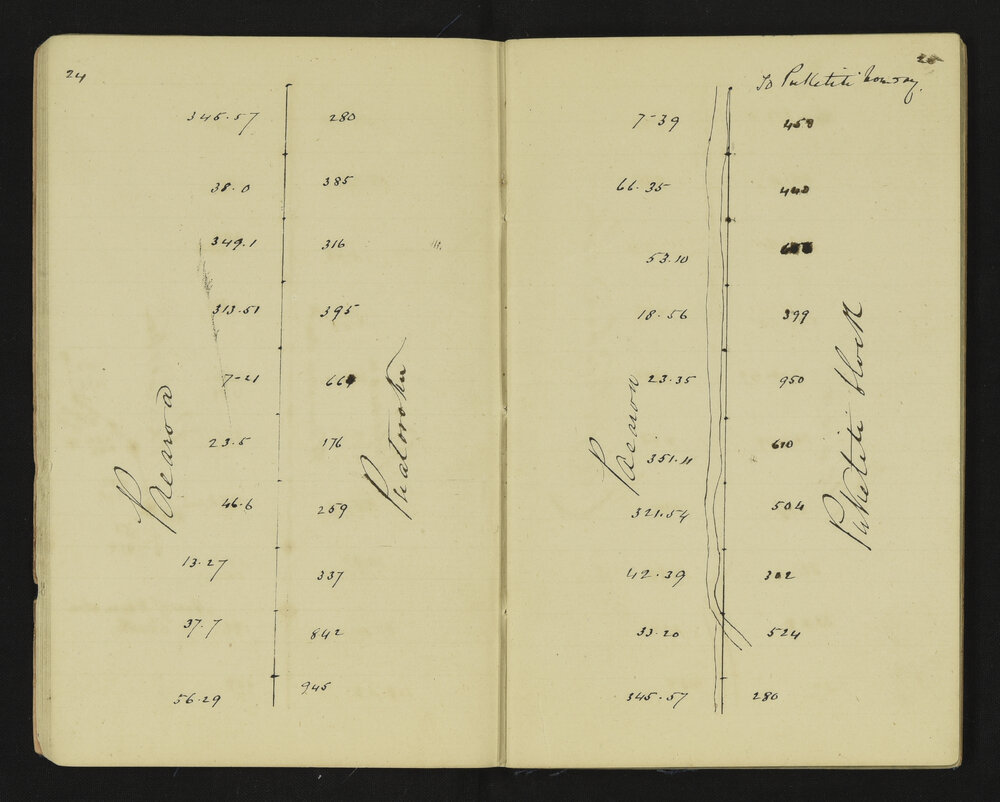 24
345.57 280
38.0 385
349.1 316
313.51 395
7-21 664
23.5 176
46.6 259
13.27 337
37.7 842
56.29 945
Paearoa
25
To Puketiti
7-39 450
66.35 440
53.10
18.56 399
23.35 950
351.4 610
321.54 504
42.39 302
33.20 524
345.57 280
Puketiti block